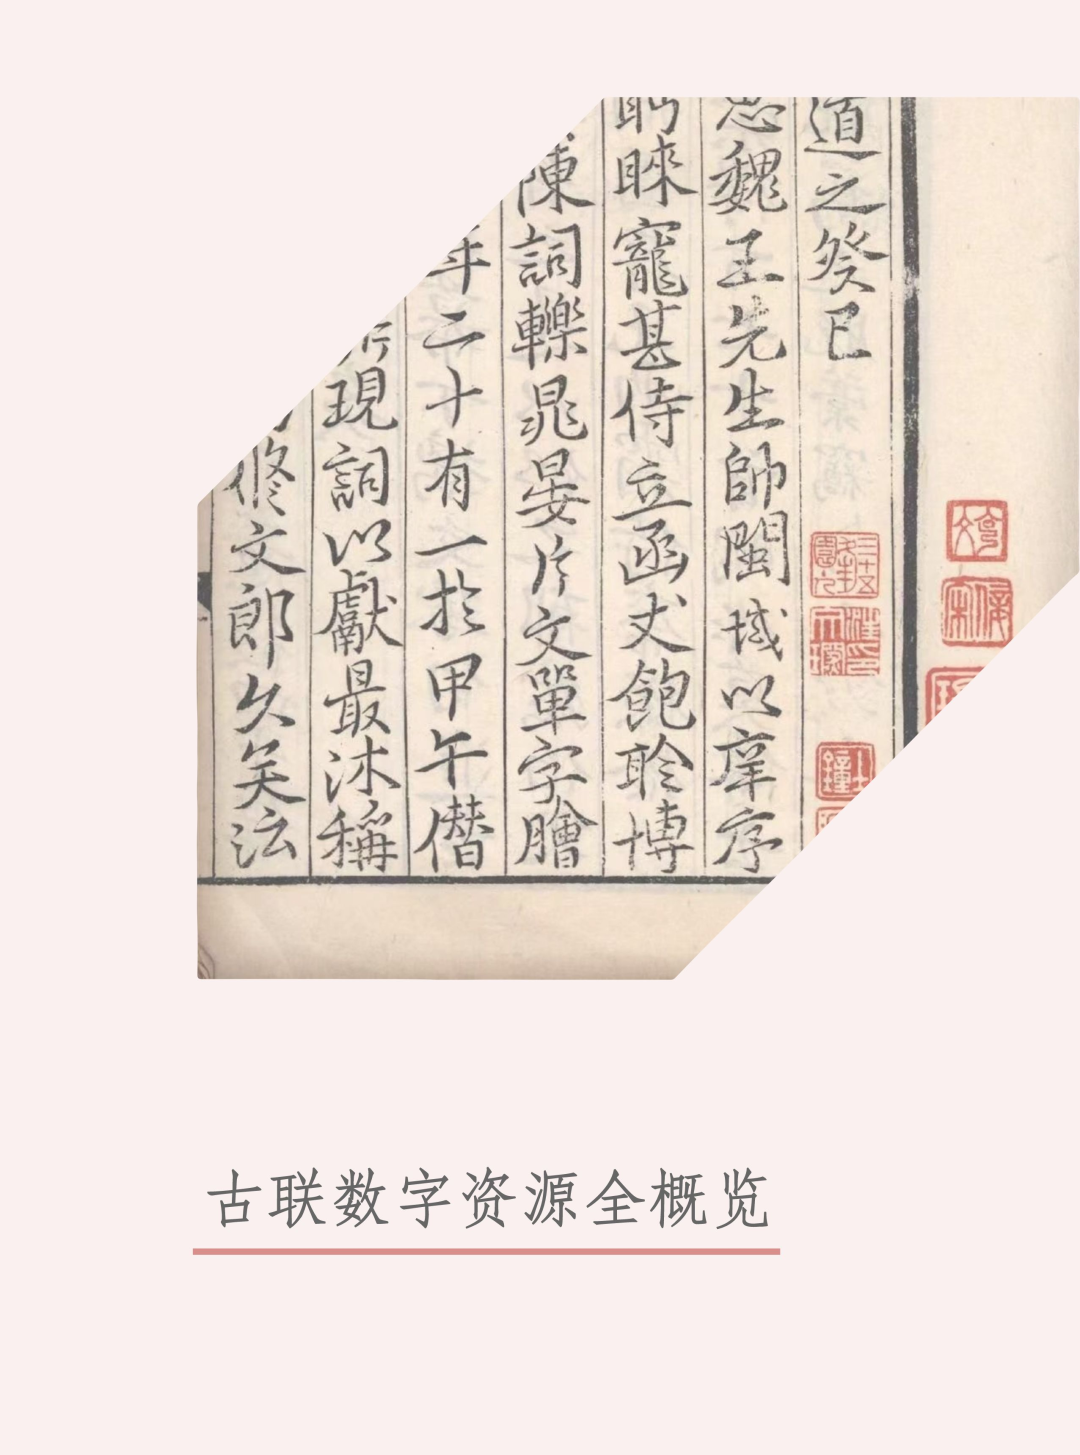 道之癸巳
魏王先生帥閩域以庠序
睞寵甚侍立函丈飽聆博
陳詞轢晁晏片文單字膾
年二十有一於甲午僭
現詞以獻最沐稱
修文郎久矣法
古联数字资源全概览